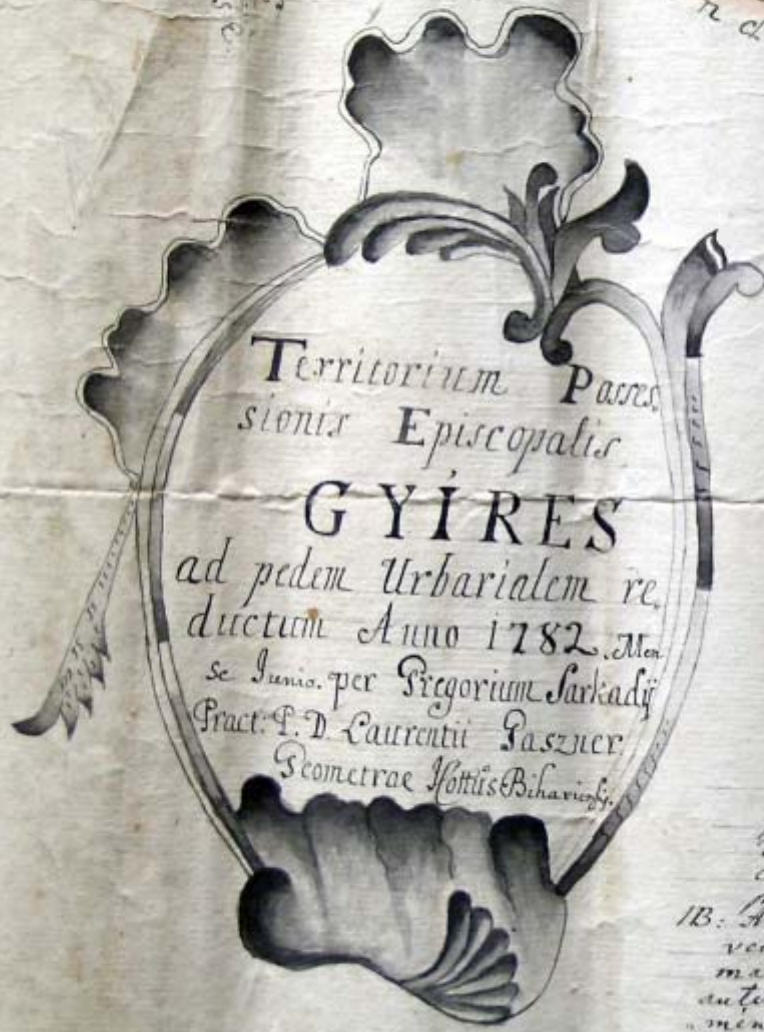 Territorium Posses
sionis Episcopalis
GYÍRES
ad pedem Urbarialem re
ductum Anno 1782. Men
se Junio. per Gregorium Sarkadÿ
Pract: P. D. Laurentii Gaszner
Geometrae Bihariensis.